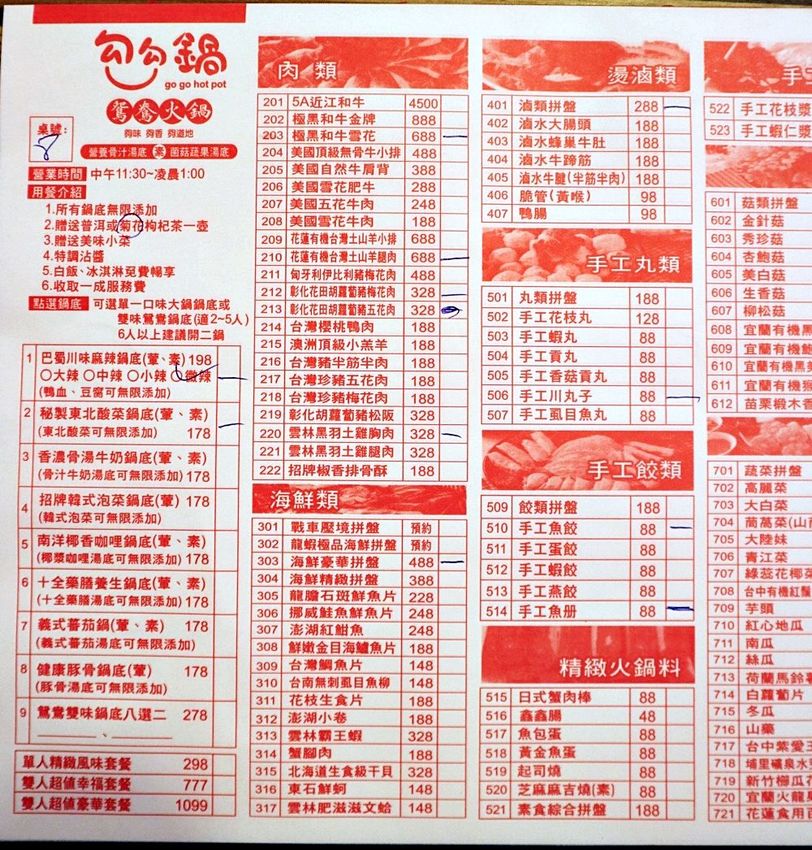 勾勾鍋
go go hot pot
鴛鴦火鍋
夠味 夠香 夠道地
桌號:
8
營養骨汁湯底 素 菌菇蔬果湯底
營業時間 中午11:30~凌晨1:00
用餐介紹
1.所有鍋底無限添加
2.贈送普洱或菊花枸杞茶一壺
3.贈送美味小菜
4.特調沾醬
5.白飯、冰淇淋免費暢享
6.收取一成服務費
點選鍋底 可選單一口味大鍋鍋底或
雙味鴛鴦鍋底(適2~5人)
6人以上建議開二鍋
1 巴蜀川味麻辣鍋底(葷、素) 198
○大辣 ○中辣 ○小辣 ○微辣
(鴨血、豆腐可無限添加)
2 秘製東北酸菜鍋底(葷、素)
(東北酸菜可無限添加) 178
3 香濃骨湯牛奶鍋底(葷、素)
(骨汁牛奶湯底可無限添加) 178
4 招牌韓式泡菜鍋底(葷) 178
(韓式泡菜可無限添加)
5 南洋椰香咖哩鍋底(葷、素)
(椰漿咖哩湯底可無限添加) 178
6 十全藥膳養生鍋底(葷、素)
(十全藥膳湯底可無限添加) 178
7 義式蕃茄鍋(葷、素) 178
(義式蕃茄湯底可無限添加)
8 健康豚骨鍋底(葷) 178
(豚骨湯底可無限添加)
9 鴛鴦雙味鍋底八選二 278
、
單人精緻風味套餐 298
雙人超值幸福套餐 777
雙人超值豪華套餐 1099
肉 類
201 5A近江和牛 4500
202 極黑和牛金牌 888
203 極黑和牛雪花 688
204 美國頂級無骨牛小排 488
205 美國自然牛肩背 388
206 美國雪花肥牛 288
207 美國五花牛肉 248
208 美國雪花牛肉 188
209 花蓮有機台灣土山羊小排 688
210 花蓮有機台灣土山羊腿肉 688
211 匈牙利伊比利豬梅花肉 488
212 彰化花田胡蘿蔔豬梅花肉 328
213 彰化花田胡蘿蔔豬五花肉 328
214 台灣櫻桃鴨肉 188
215 澳洲頂級小羔羊 188
216 台灣豬半筋半肉 188
217 台灣珍豬五花肉 188
218 台灣珍豬梅花肉 188
219 彰化胡蘿蔔豬松阪 328
220 雲林黑羽土雞胸肉 328
221 雲林黑羽土雞腿肉 328
222 招牌椒香排骨酥 188
海鮮類
301 戰車壓境拼盤 預約
302 龍蝦極品海鮮拼盤 預約
303 海鮮豪華拼盤 488
304 海鮮精緻拼盤 388
305 龍膽石斑鮮魚片 228
306 挪威鮭魚鮮魚片 248
307 澎湖紅魽魚 248
308 鮮嫩金目海鱸魚片 188
309 台灣鯛魚片 148
310 台南無刺虱目魚柳 148
311 花枝生食片 188
312 澎湖小卷 188
313 雲林霸王蝦 328
314 蟹腳肉 188
315 北海道生食級干貝 328
316 東石鮮蚵 148
317 雲林肥滋滋文蛤 148
燙滷類
401 滷類拼盤 288
402 滷水大腸頭 188
403 滷水蜂巢牛肚 188
404 滷水牛蹄筋 188
405 滷水牛腱(半筋半肉) 188
406 脆管(黃喉) 98
407 鴨腸 98
手工丸類
501 丸類拼盤 188
502 手工花枝丸 128
503 手工蝦丸 88
504 手工貢丸 88
505 手工香菇貢丸 88
506 手工川丸子 88
507 手工虱目魚丸 88
手工餃類
509 餃類拼盤 188
510 手工魚餃 88
511 手工蛋餃 88
512 手工蝦餃 88
513 手工燕餃 88
514 手工魚册 88
精緻火鍋料
515 日式蟹肉棒 88
516 鑫鑫腸 48
517 魚包蛋 88
518 黃金魚蛋 88
519 起司燒 88
520 芝麻麻吉燒(素) 88
521 素食綜合拼盤 188
手
522 手工花枝漿
523 手工蝦仁漿
601 菇類拼盤
602 金針菇
603 秀珍菇
604 杏鮑菇
605 美白菇
606 生香菇
607 柳松菇
608 宜蘭有機
609 宜蘭有機鮑
610 宜蘭有機黑美
611 宜蘭有機猴
612 苗栗椴木香
701 蔬菜拼盤
702 高麗菜
703 大白菜
704 萵萵菜(山
705 大陸妹
706 青江菜
707 綠蕊花椰菜
708 台中有機紅鬚
709 芋頭
710 紅心地瓜
711 南瓜
712 絲瓜
713 荷蘭馬鈴薯
714 白蘿蔔片
715 冬瓜
716 山藥
717 台中紫愛玉
718 埔里礦泉水
719 新竹櫛瓜花
720 宜蘭火龍果
721 花蓮食用百